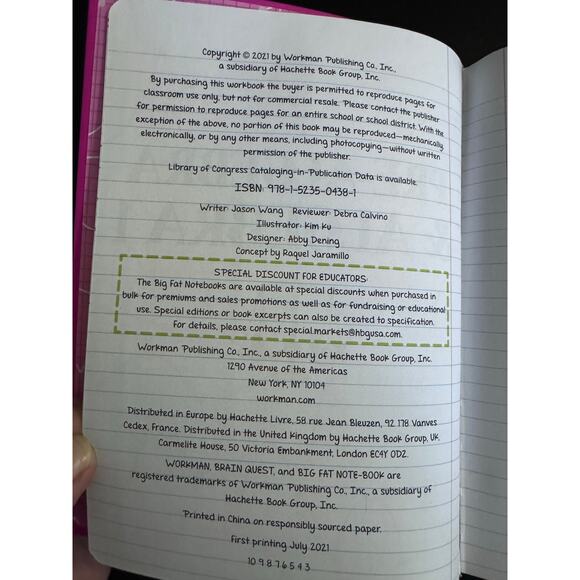 Copyright © 2021 by Workman Publishing Co., Inc.,
a subsidiary of Hachette Book Group, Inc.
By purchasing this workbook the buyer is permitted to reproduce pages for
classroom use only, but not for commercial resale. Please contact the publisher
for permission to reproduce pages for an entire school or school district. With the
exception of the above, no portion of this book may be reproduced—mechanically,
electronically, or by any other means, including photocopying—without written
permission of the publisher.
Library of Congress Cataloging-in-Publication Data is available.
ISBN: 978-1-5235-0438-1
Writer: Jason Wang Reviewer: Debra Calvino
Illustrator: Kim Ku
Designer: Abby Dening
Concept by Raquel Jaramillo
SPECIAL DISCOUNT FOR EDUCATORS:
The Big Fat Notebooks are available at special discounts when purchased in
bulk for premiums and sales promotions as well as for fundraising or educational
use. Special editions or book excerpts can also be created to specification.
For details, please contact special.markets@hbgusa.com.
Workman Publishing Co., Inc., a subsidiary of Hachette Book Group, Inc.
1290 Avenue of the Americas
New York, NY 10104
workman.com
Distributed in Europe by Hachette Livre, 58 rue Jean Bleuzen, 92 178 Vanves
Cedex, France. Distributed in the United Kingdom by Hachette Book Group, UK,
Carmelite House, 50 Victoria Embankment, London EC4Y 0DZ.
WORKMAN, BRAIN QUEST, and BIG FAT NOTE-BOOK are
registered trademarks of Workman Publishing Co., Inc., a subsidiary of
Hachette Book Group, Inc.
Printed in China on responsibly sourced paper.
First printing July 2021
10 9 8 7 6 5 4 3